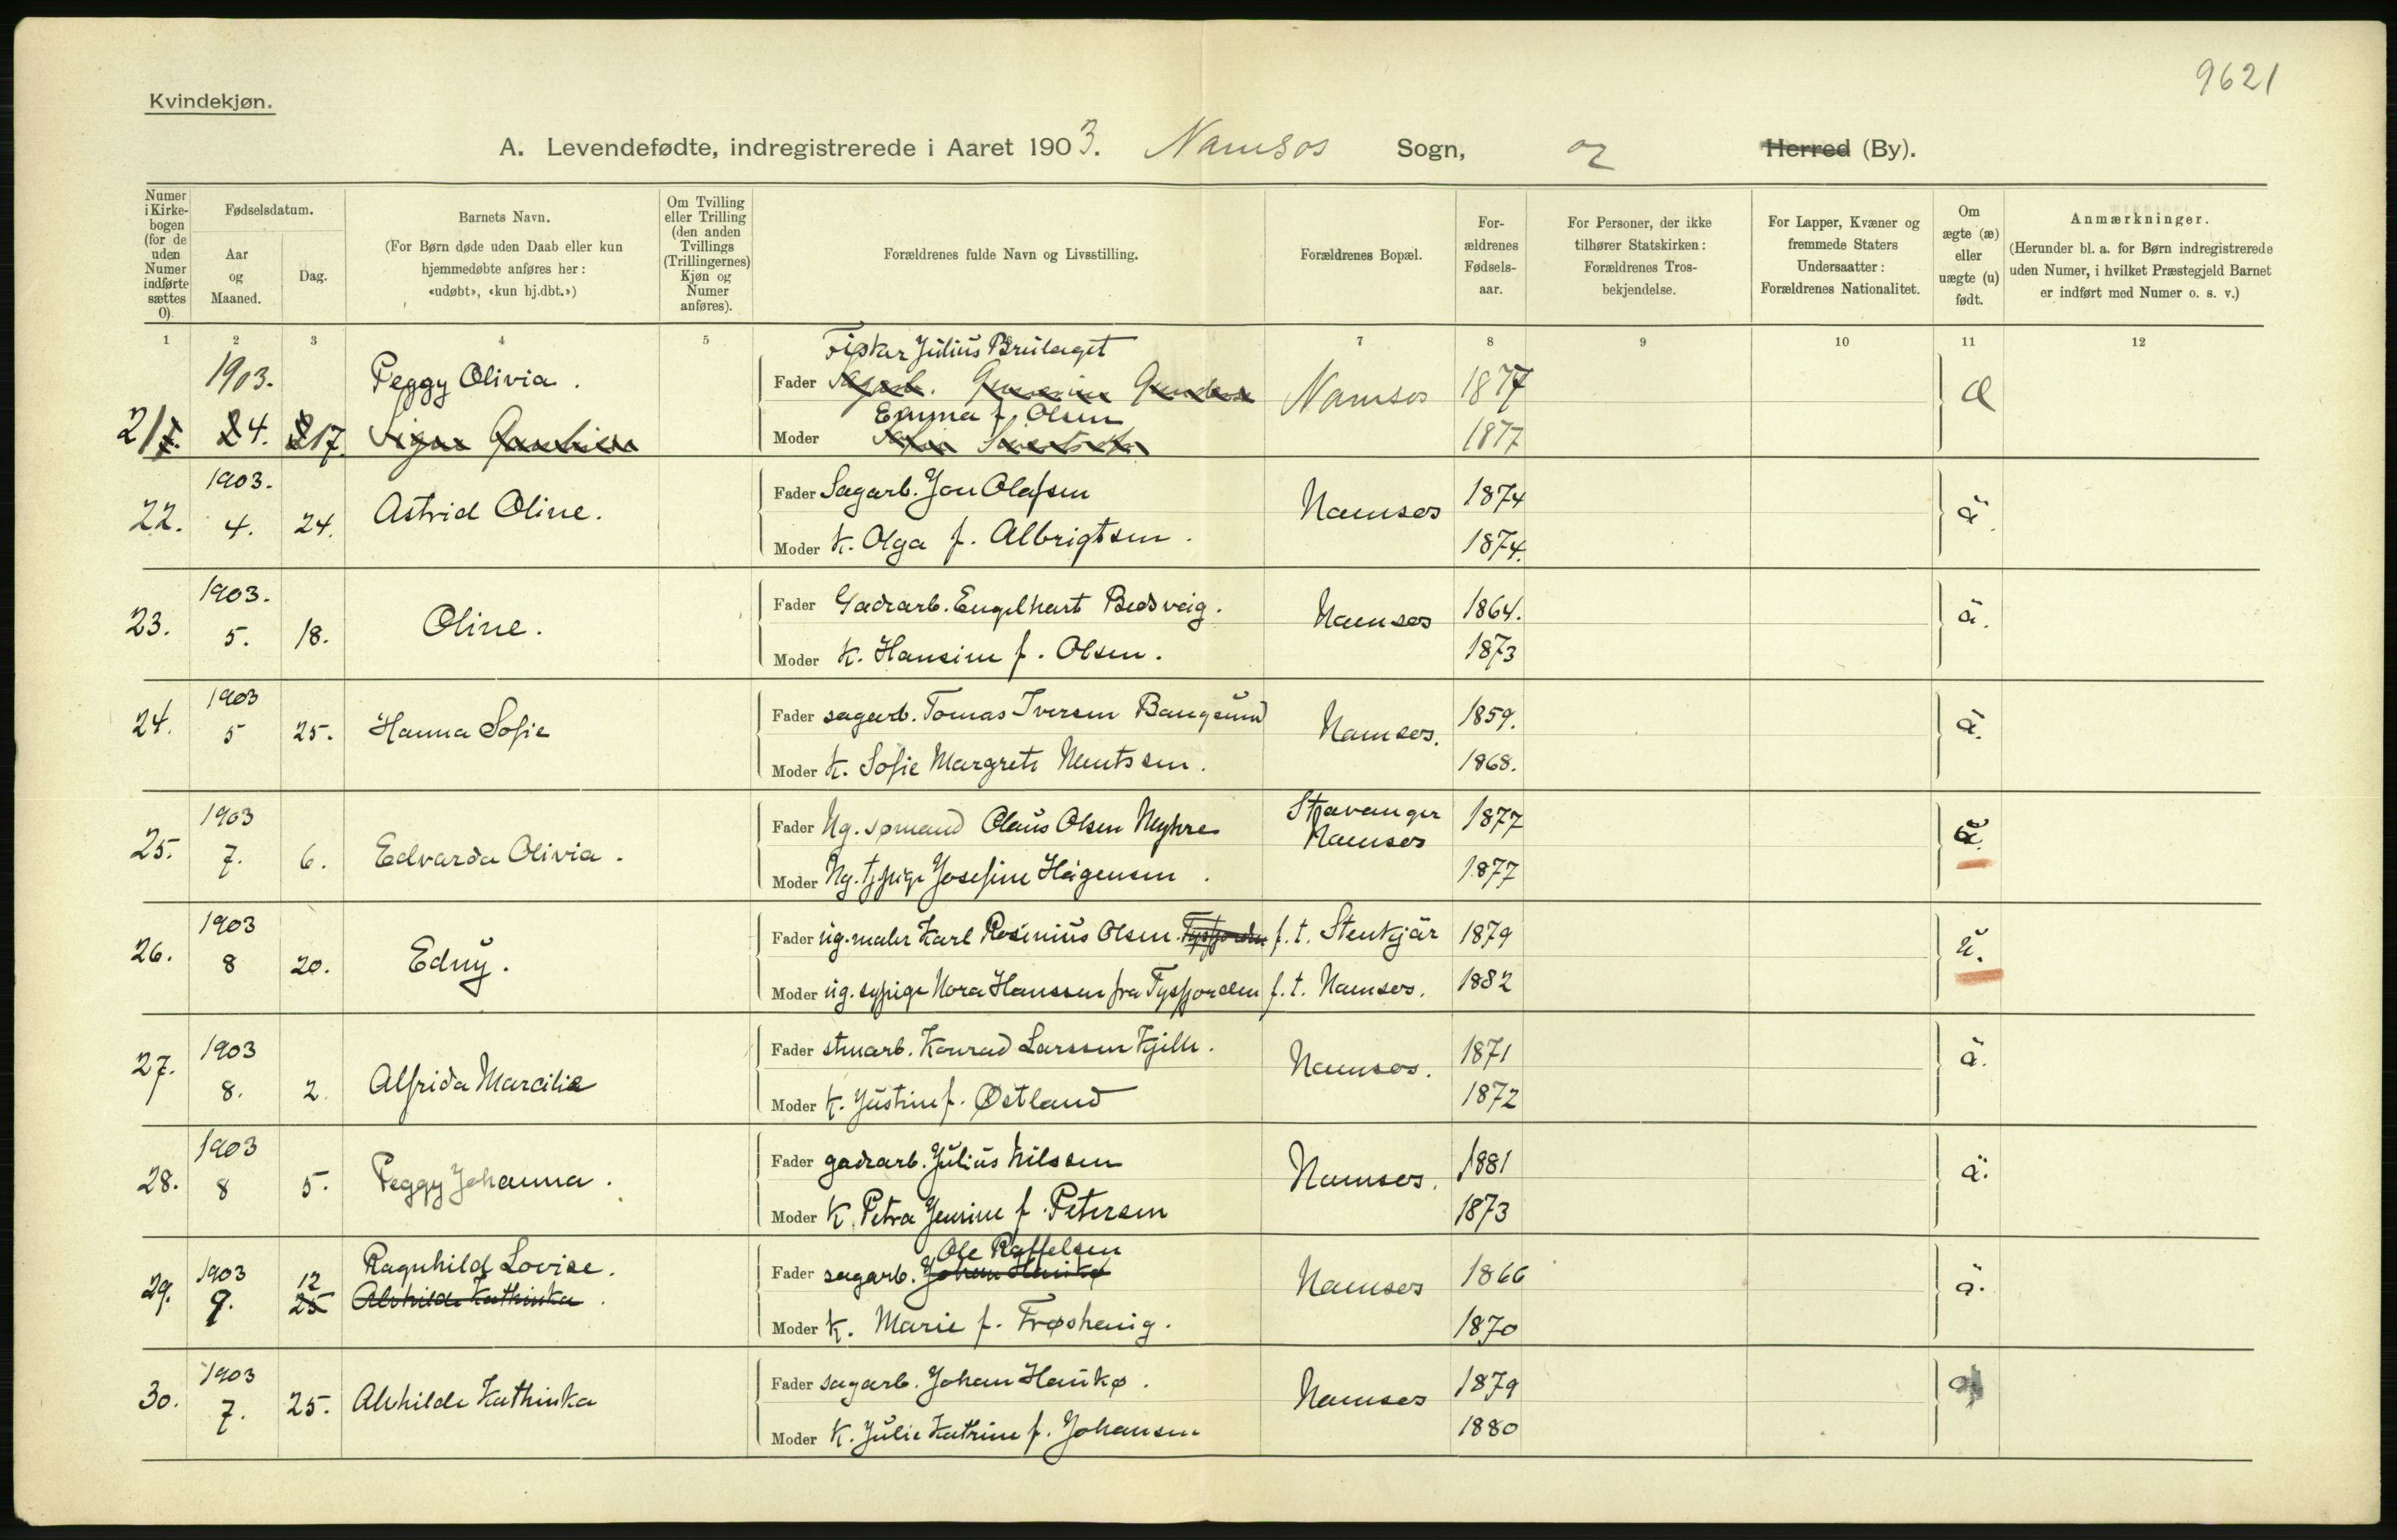 9621
Kvindekjøn.
A. Levendefødte, indregistrerede i Aaret 1903. Namsos Sogn, og Herred (By).
Numer i Kirkebogen (for de uden Numer indførte sættes 0).
Fødselsdatum.
Aar og Maaned.
Dag.
Barnets Navn.
(For Børn døde uden Daab eller kun hjemmedøbte anføres her: «udøbt», «kun hj.dbt.»)
Om Tvilling eller Trilling (den anden Tvillings (Trillingernes) Kjøn og Numer anføres).
Forældrenes fulde Navn og Livsstilling.
Forældrenes Bopæl.
Forældrenes Fødselsaar.
For Personer, der ikke tilhører Statskirken: Forældrenes Trosbekjendelse.
For Lapper, Kvæner og fremmede Staters Undersaatter: Forældrenes Nationalitet.
Om ægte (æ) eller uægte (u) født.
Anmærkninger.
(Herunder bl. a. for Børn indregistrerede uden Numer, i hvilket Præstegjeld Barnet er indført med Numer o. s. v.)
1 2 3 4 5 7 8 9 10 11 12
21 1903. 4. 17. Peggy Olivia. Fader Fisker Julius Namsos 1877 æ
Moder Emma f. Olsen 1877
22. 1903. 4. 24. Astrid Oline. Fader Sagarb. Jon Olafsen Namsos 1874 ä.
Moder K. Olga f. Albrigtsen. 1874.
23. 1903. 5. 18. Oline. Fader Gadearb. Engelhart Namsos 1864. ä.
Moder K. Hansine f. Olsen. 1873
24. 1903 5 25. Hanna Sofie Fader sagarb. Tomas Iversen Bangsund Namsos. 1859. ä.
Moder K. Sofie Margrete 1868.
25. 1903 7. 6. Edvarda Olivia. Fader Ug. sømand Olaus Olsen Myhre Stavanger 1877
Namsos
Moder Ug. Josefine Hågensen. 1877
26. 1903 8 20. Edny. Fader ug. maler Karl Rosinius Olsen. Tysfjorden f. t. Stenkjär 1879 ŭ.
Moder ug. sypige Nora Hanssen fra Tysfjorden f. t. Namsos. 1882
27. 1903 8. 2. Alfrida Marcilie Fader Konrad Larssen Namsos. 1871 ä.
Moder K. Justine f. Østland 1872
28. 1903 8 5. Peggy Johanna. Fader gadearb. Julius Nilssen Namsos. 1881 ä.
Moder K. Petra Jensine f. Petersen 1873
29. 1903 9. 12 25 Ragnhild Lovise. Fader sagarb. Ole Raffelsen Namsos 1866 ä.
Alvhilde Kathinka. Johan Haukø
Moder K. Marie f. 1870
30. 1903 7. 25. Alvhilde Kathinka Fader sagarb. Johan Haukø. Namsos 1879
Moder K. Julie Katrine f. Johansen 1880